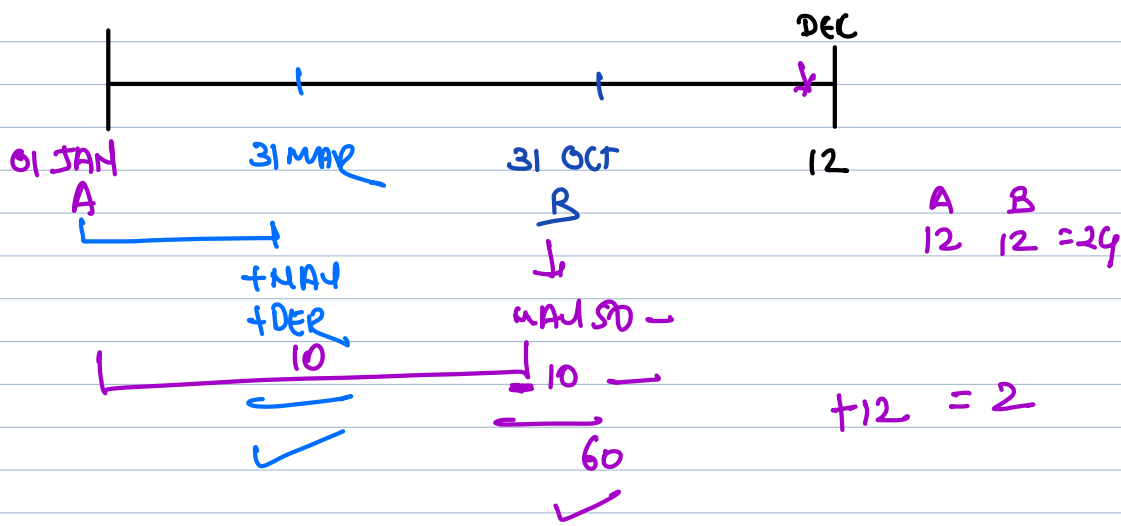 DEC
01 JAN 31 MAR 31 OCT 12
A B A B
12 12 = 24
+MAU
+DEP
MAU 50 -
10
10
+12 = 2
60